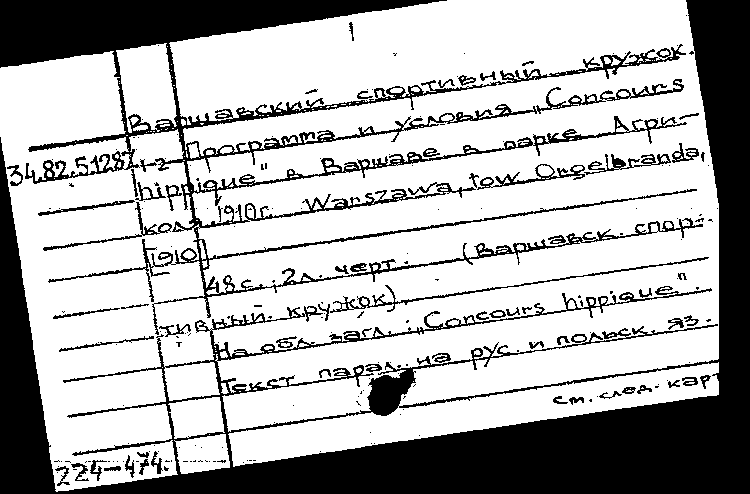 Варшавский спортивный кружок.
34.82.5.1287
1-2 Программа и условия „Concours
hippique" в Варшаве в парке Агри-
кола 1910г. Warszawa, tow Orgelbranda,
[1910].
48с., 2л. черт. (Варшавск. спор-
тивный кружок).
На обл. загл.: „Concours hippique".
Текст парал. на рус. и польск. яз.
см. след. карт
224-474.